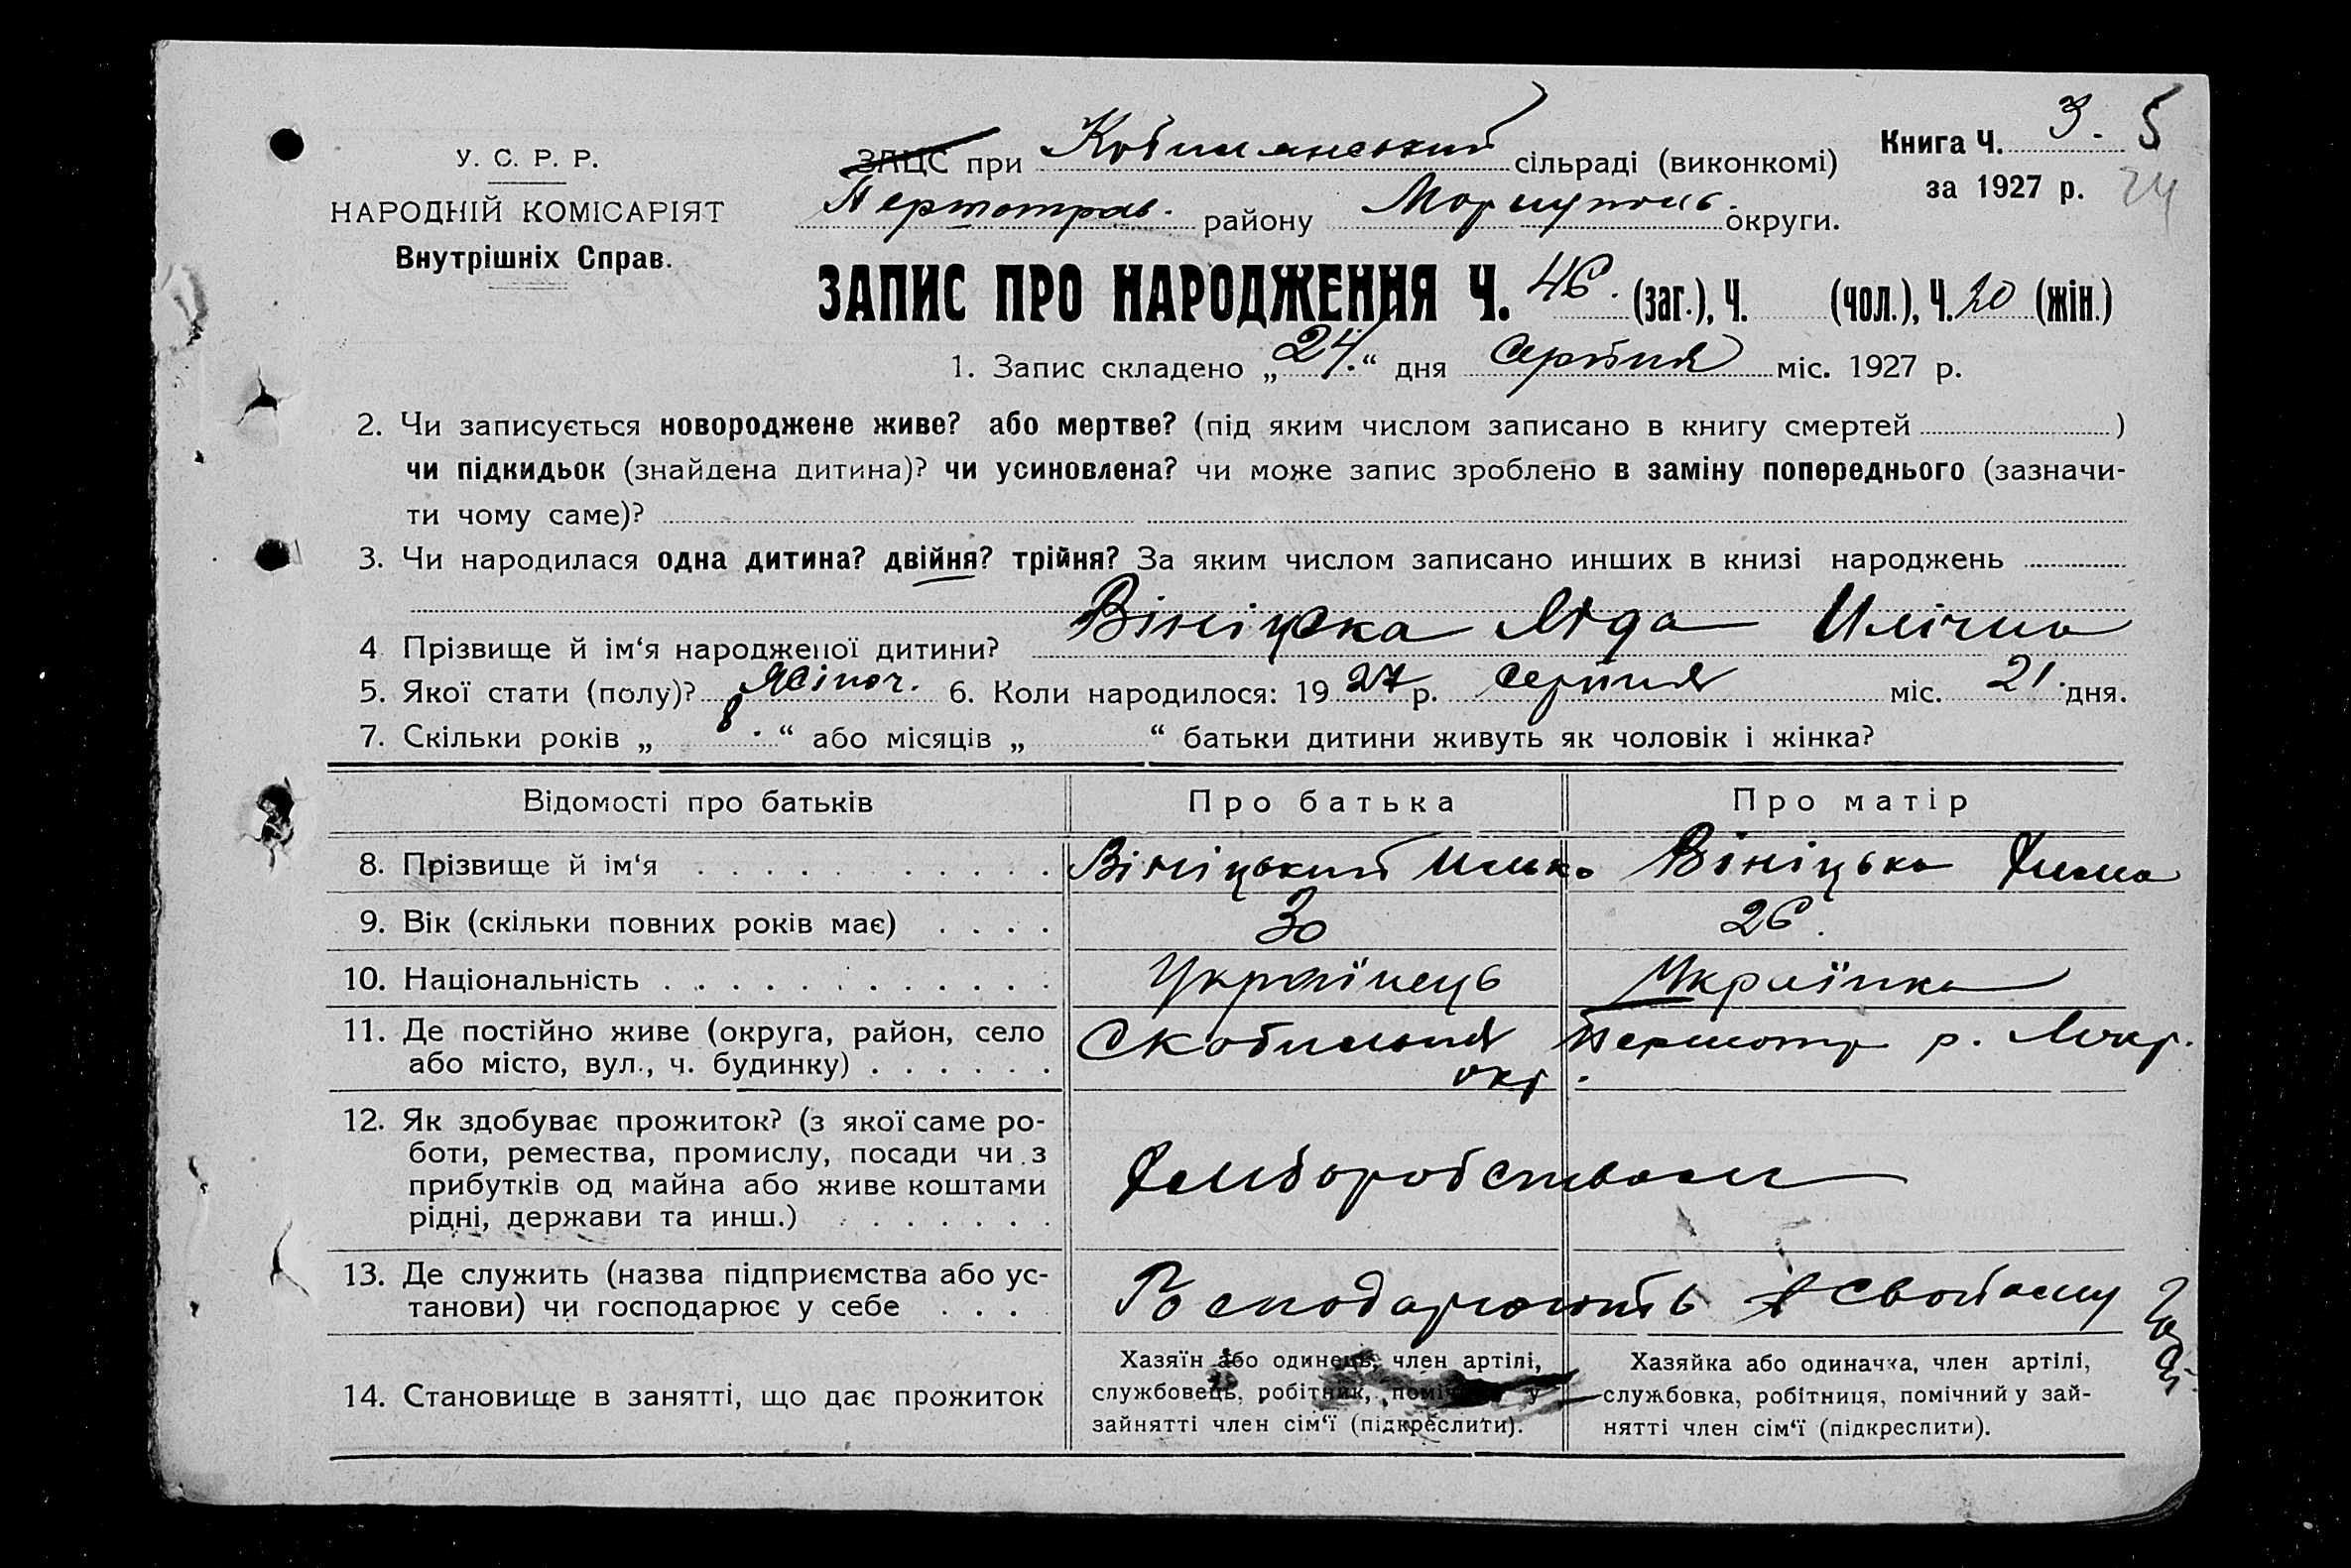 У. С. Р. Р.
НАРОДНІЙ КОМІСАРІЯТ
Внутрішніх Справ.
ЗАЦС при сільраді (виконкомі)
Першотрав. району Марʼупольс. округи.
Книга Ч. 3. 5
за 1927 р. 24
ЗАПИС ПРО НАРОДЖЕННЯ Ч. 46. (заг.), Ч. (чол.), Ч. 20 (жін.)
1. Запис складено „24.“ дня серпня міс. 1927 р.
2. Чи записується новороджене живе? або мертве? (під яким числом записано в книгу смертей )
чи підкидьок (знайдена дитина)? чи усиновлена? чи може запис зроблено в заміну попереднього (зазначи-
ти чому саме)?
3. Чи народилася одна дитина? двійня? трійня? За яким числом записано инших в книзі народжень
4 Прізвище й ім‘я народженої дитини? Вініцька Ліда Илічна
5. Якої стати (полу)? Жіноч. 6. Коли народилося: 1927 р. серпня міс. 21. дня.
7. Скільки років „ 8. “ або місяців „ “ батьки дитини живуть як чоловік і жінка?
Відомості про батьків Про батька Про матір
8. Прізвище й ім‘я Вініцький Илько Вініцька
9. Вік (скільки повних років має) 30 26.
10. Національність Українець Українка
11. Де постійно живе (округа, район, село
або місто, вул., ч. будинку)
р.
окр.
12. Як здобуває прожиток? (з якої саме ро-
боти, ремества, промислу, посади чи з
прибутків од майна або живе коштами
рідні, держави та инш.)
Хлиборобством
13. Де служить (назва підприємства або ус-
танови) чи господарює у себе
Господарюють в свойому
14. Становище в занятті, що дає прожиток
Хазяїн або одинець, член артілі,
службовець, робітник, у
зайнятті член сім‘ї (підкреслити).
Хазяйка або одиначка, член артілі,
службовка, робітниця, помічний у зай-
нятті член сім‘ї (підкреслити).